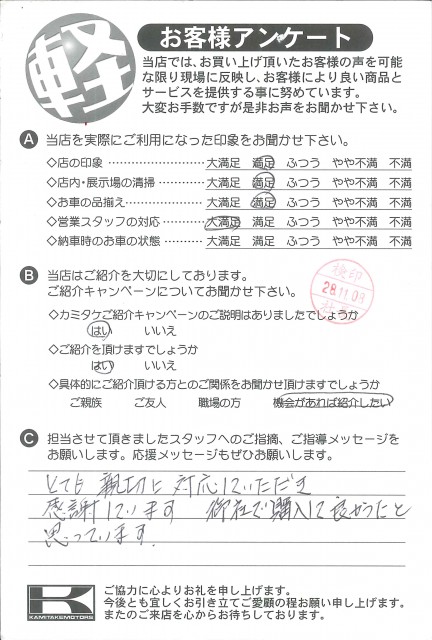 軽
お客様アンケート
当店では、お買い上げ頂いたお客様の声を可能
な限り現場に反映し、お客様により良い商品と
サービスを提供する事に努めています。
大変お手数ですが是非お声をお聞かせ下さい。
A 当店を実際にご利用になった印象をお聞かせ下さい。
◇店の印象 ………………… 大満足 満足 ふつう やや不満 不満
◇店内・展示場の清掃 ………… 大満足 満足 ふつう やや不満 不満
◇お車の品揃え ……………… 大満足 満足 ふつう やや不満 不満
◇営業スタッフの対応 ………… 大満足 満足 ふつう やや不満 不満
◇納車時のお車の状態 ………… 大満足 満足 ふつう やや不満 不満
B 当店はご紹介を大切にしております。
ご紹介キャンペーンについてお聞かせ下さい。
検印
28.11.08
◇カミタケご紹介キャンペーンのご説明はありましたでしょうか
はい いいえ
◇ご紹介を頂けますでしょうか
はい いいえ
◇具体的にご紹介頂ける方とのご関係をお聞かせ頂けますでしょうか
ご親族 ご友人 職場の方 機会があれば紹介したい
C 担当させて頂きましたスタッフへのご指摘、ご指導メッセージを
お願いします。応援メッセージもぜひお願いします。
とても 親切に 対応していただき
感謝しています 御社で購入して良かったと
思っています。
K
KAMITAKEMOTORS
ご協力に心よりお礼を申し上げます。
今後とも宜しくお引き立てご愛顧の程お願い申し上げます。
またのご来店を心からお待ちしております。